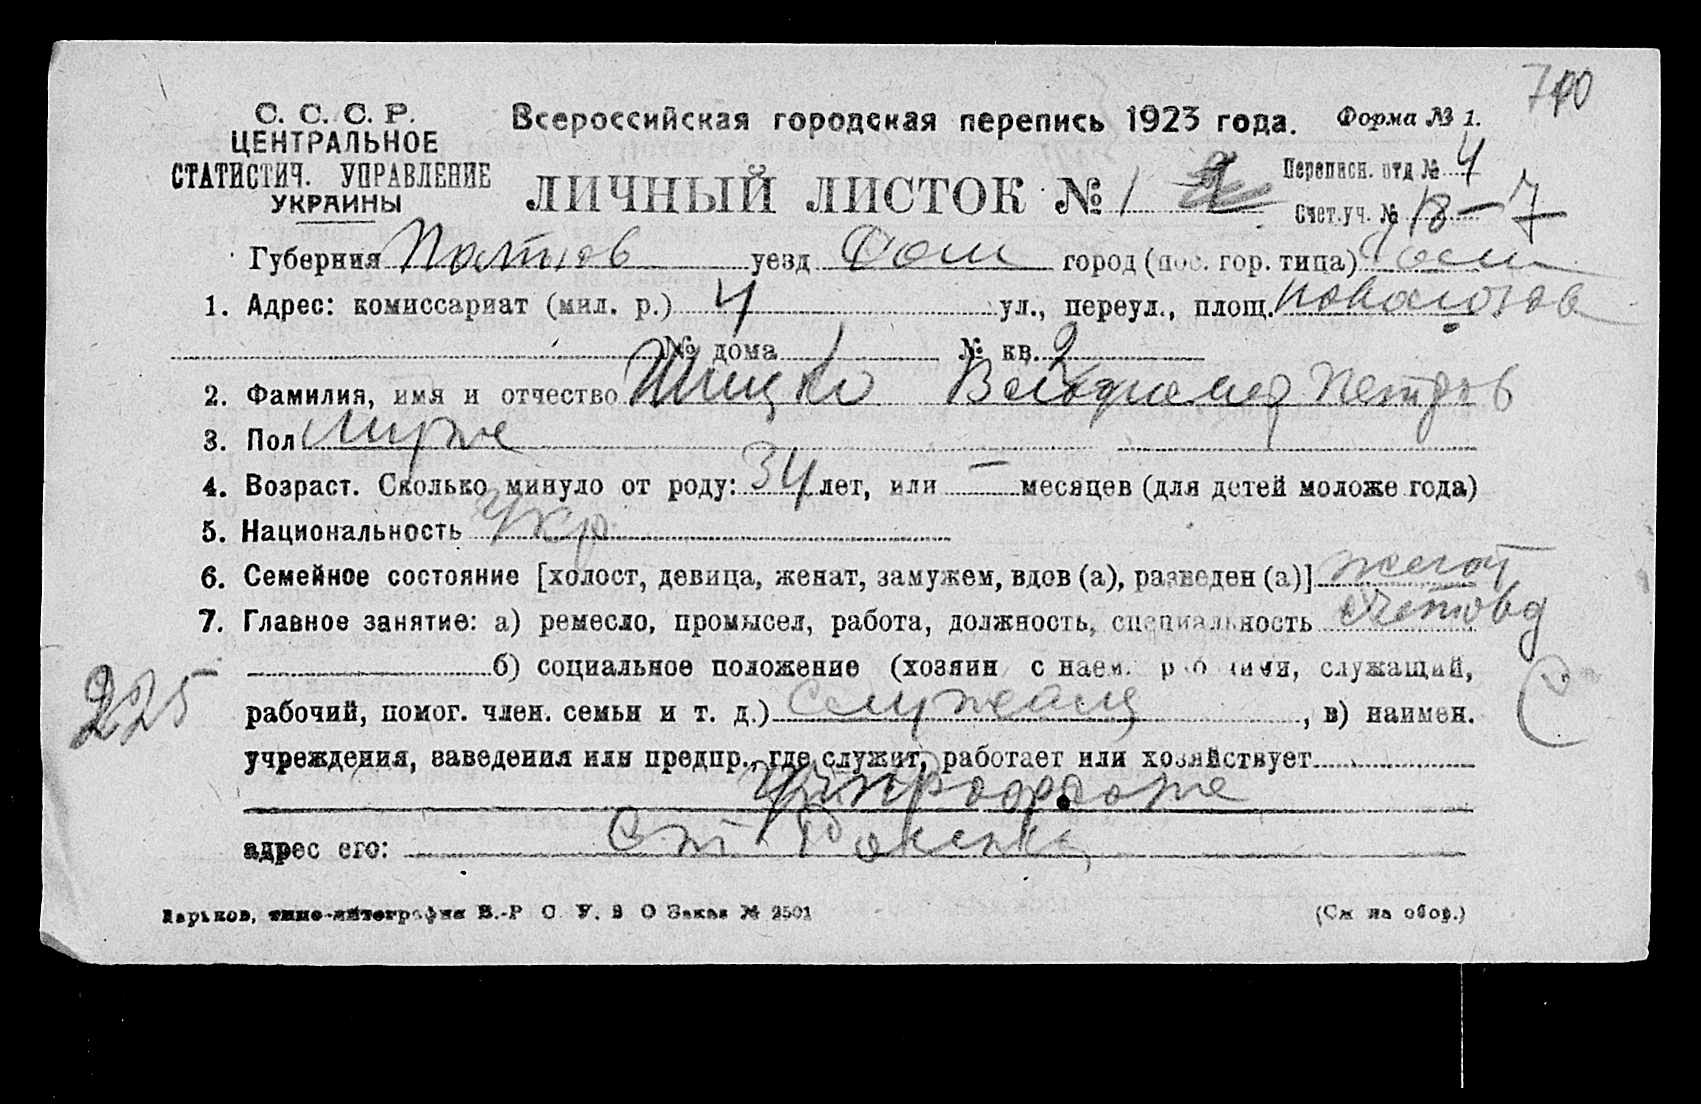 700
С. С. С. Р.
ЦЕНТРАЛЬНОЕ
СТАТИСТИЧ. УПРАВЛЕНИЕ
УКРАИНЫ
Всероссийская городская перепись 1923 года. Форма № 1.
ЛИЧНЫЙ ЛИСТОК № 1
Переписн. отд № 4
Счет. уч. № 18-7
Губерния Полтав уезд Ром город (пос. гор. типа) Ром
1. Адрес: комиссариат (мил. р.) 4 ул., переул., площ.
№ дома 1 № кв. 2
2. Фамилия, имя и отчество Шицко Петров
3. Пол Муж
4. Возраст. Сколько минуло от роду: 34 лет, или — месяцев (для детей моложе года)
5. Национальность Укр
6. Семейное состояние [холост, девица, женат, замужем, вдов (а), разведен (а)] женат
7. Главное занятие: а) ремесло, промысел, работа, должность, специальность счетовд
б) социальное положение (хозяин с наем. рабочими, служащий,
рабочий, помог. член. семьи и т. д.) служащ , в) наимен.
225
учреждения, заведения или предпр., где служит, работает или хозяйствует
адрес его: ст
Харьков, типо-литография В.-Р О У. В О Заказ № 2501 (См на обор.)